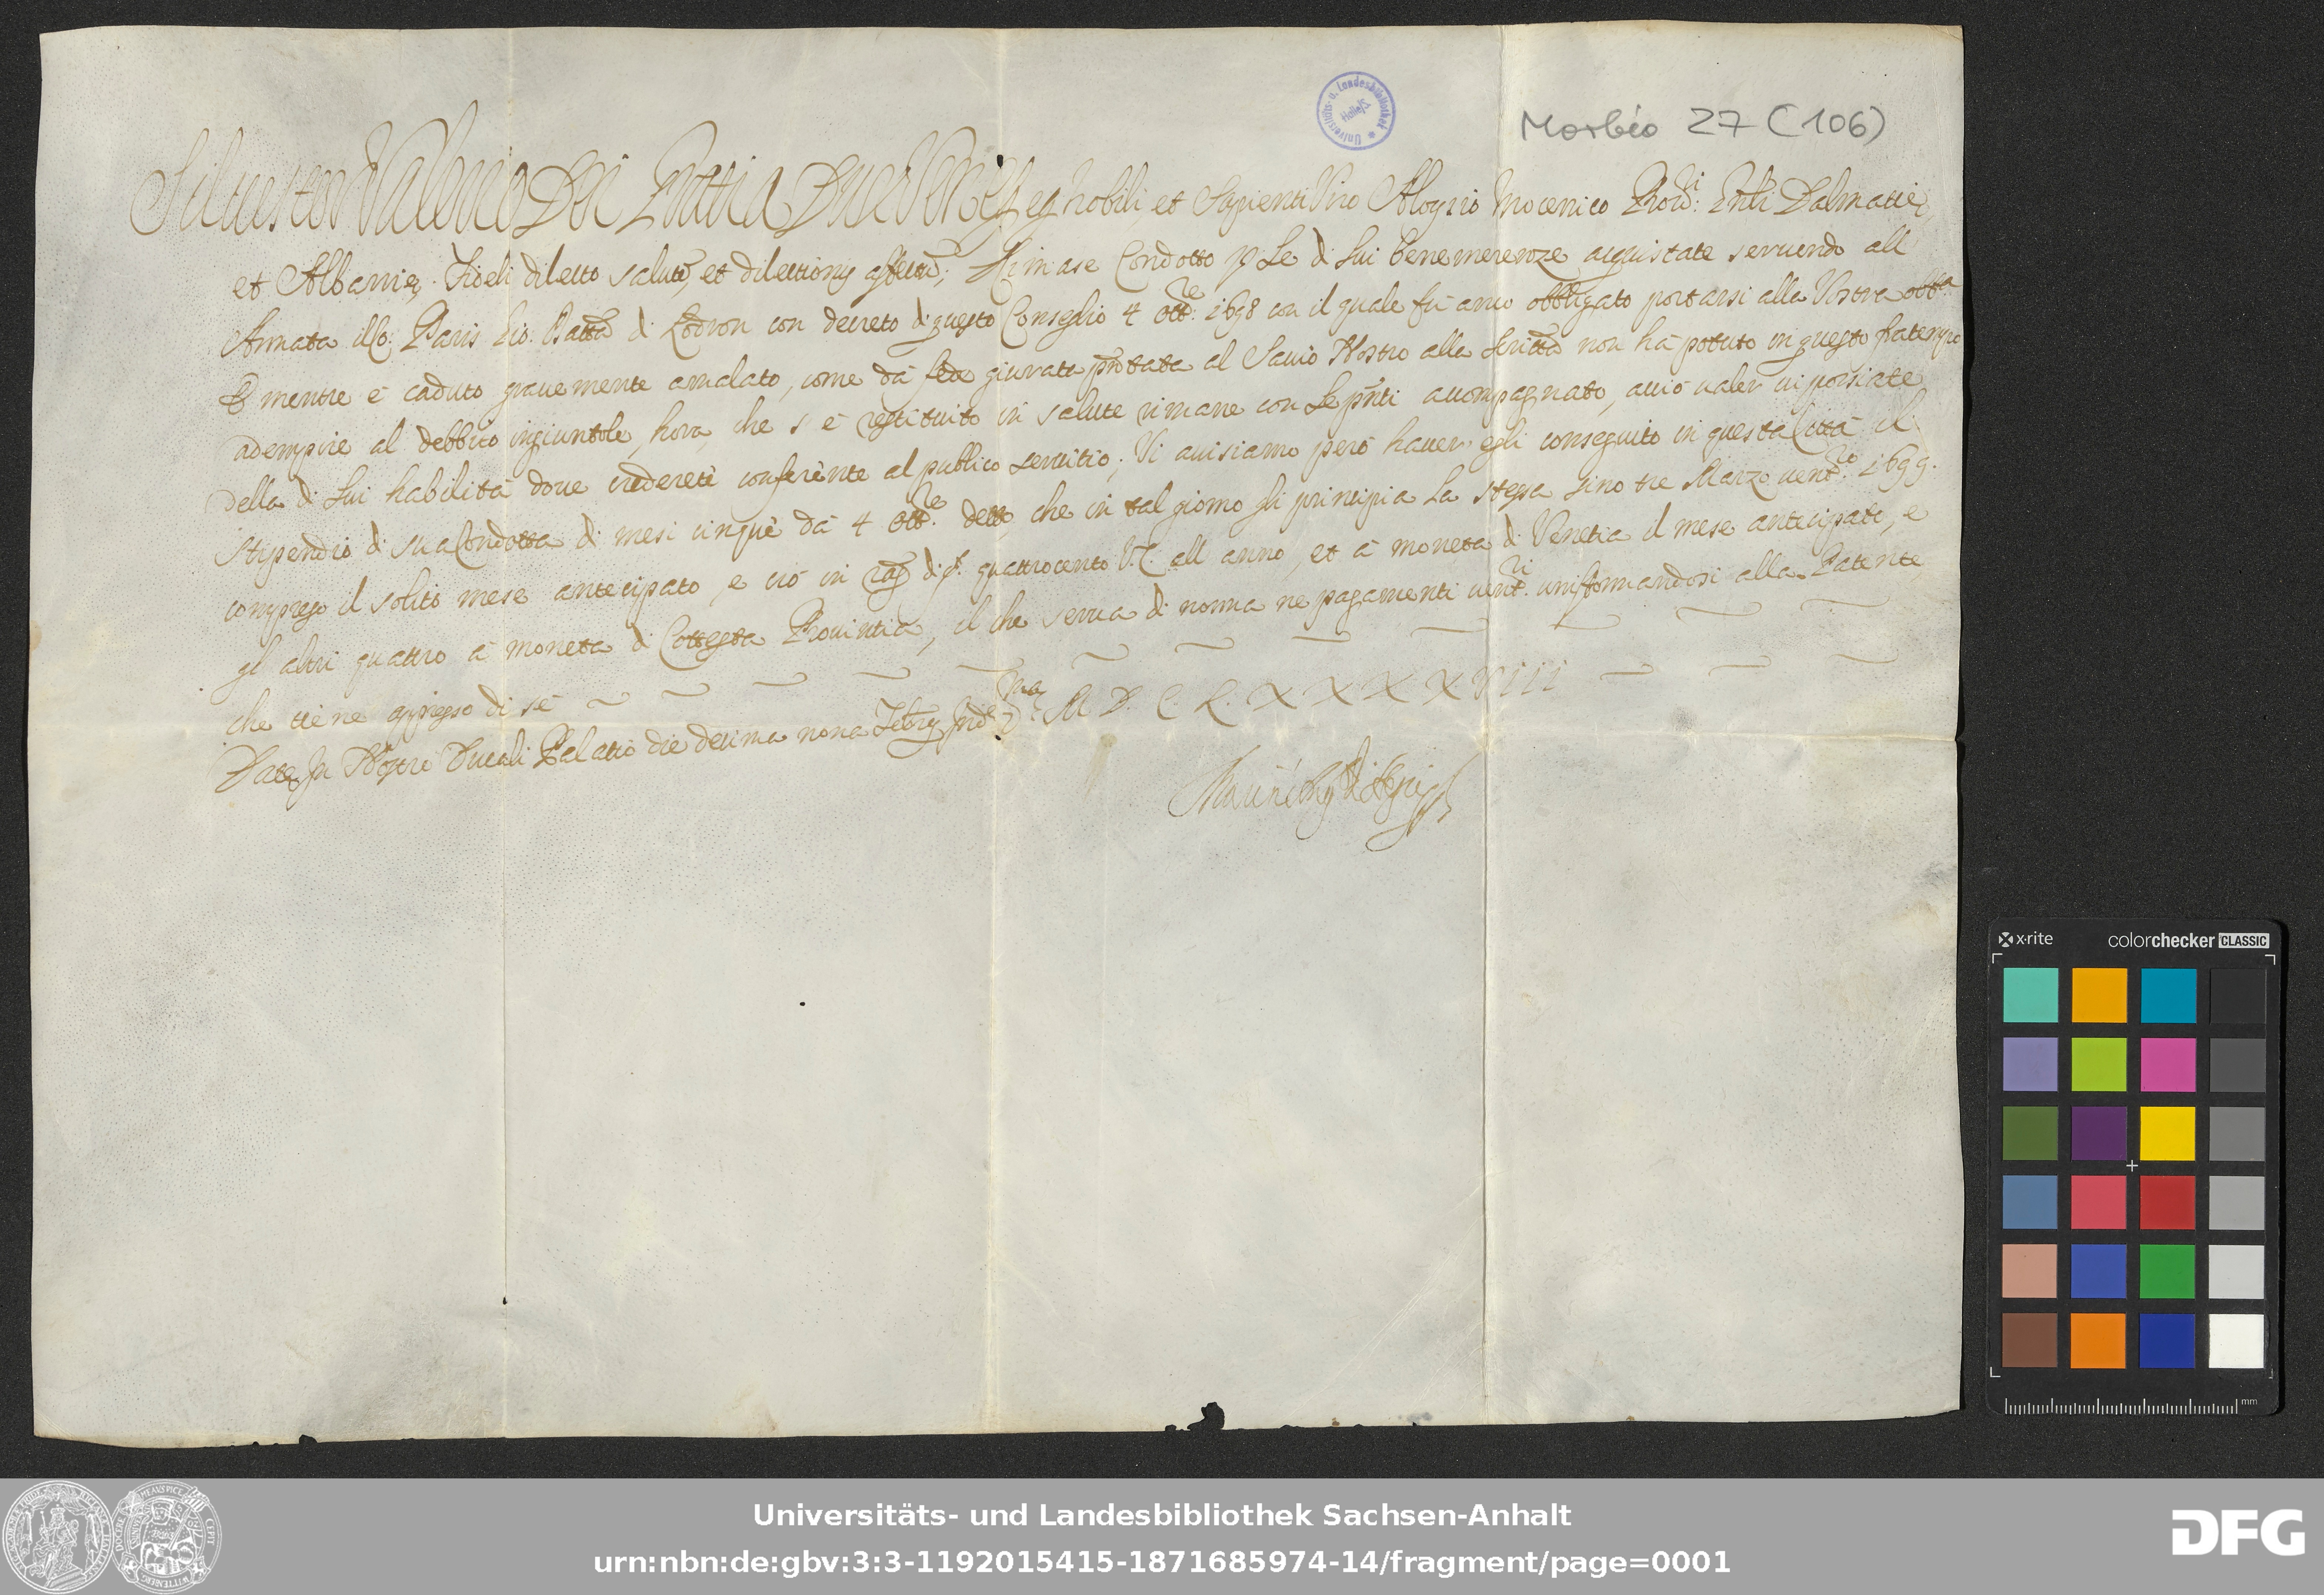 Universitäts- u. Landesbibliothek Halle/S.
Morbio 27 (106)
Siluester Valerio Dei Gratia Dux Venetz et Nobili et Sapienti Viro Aloysio Mocenico Prou:ri Gnli Dalmatie,
et Albanie. Fideli dilecto salutē, et dilectionis affectū; Rimase Condotto p Le di lui benemerenze acquistate seruendo all
Armata ill Co: Paris Gio: Batta di Lodron con decreto di questo Conseglio 4 ott:re 1698 con il quale fù anco obbligato portarsi alla Vostra obb:a
E mentre è caduto grauemente amalato, come dà fede giurata prñtata al Sauio Nostro alla Scrittā non hà potuto in questo fratempo
adempire al debbito ingiuntole, hora, che s'è restituito in salute rimane con Le prñti accompagnato, acciò ualer ui possiate
della di lui habilità doue crederete conferènte al publico seruitio; Vi auisiamo però hauer egli conseguito in questa Città il
stipendio di sua Condotta di mesi cinque dà 4 ott:re detto che in tal giorno gli principia la stessa sino tre Marzo uent:ro 1699.
compreso il solito mese antecipato, e ciò in rag di quattrocento V.C. all anno, et à moneta di Venetia il mese antecipato, e
gl altri quattro à moneta di Cottesta Prouintia, il che serua di norma ne pagamenti uent:ri uniformandosi alla Patente
che tiene appresso di sè
Date In Nostro Ducali Palatio die decima nona Febrij Ind:e 7:ma M D. C. L. X X X X V i i i
x-rite colorchecker CLASSIC
mm
Universitäts- und Landesbibliothek Sachsen-Anhalt
urn:nbn:de:gbv:3:3-1192015415-1871685974-14/fragment/page=0001
DFG